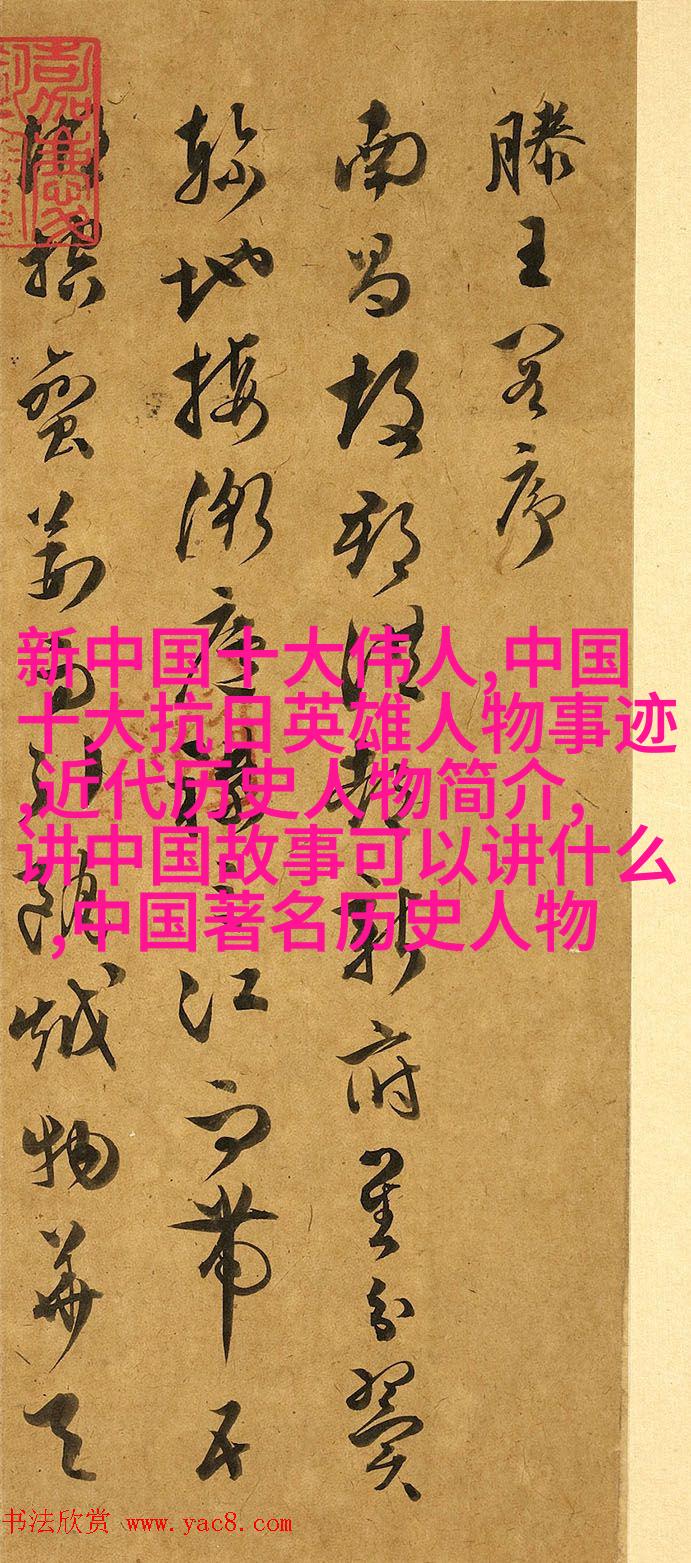 滕王閣序
南昌故郡洪都新府星分翼
軫地接衡廬襟三江而帶五
湖控蠻荊而引甌越物華天
新中国十大伟人,中国
十大抗日英雄人物事迹
,近代历史人物简介,
讲中国故事可以讲什么
,中国著名历史人物
书法欣赏 www.yac8.com